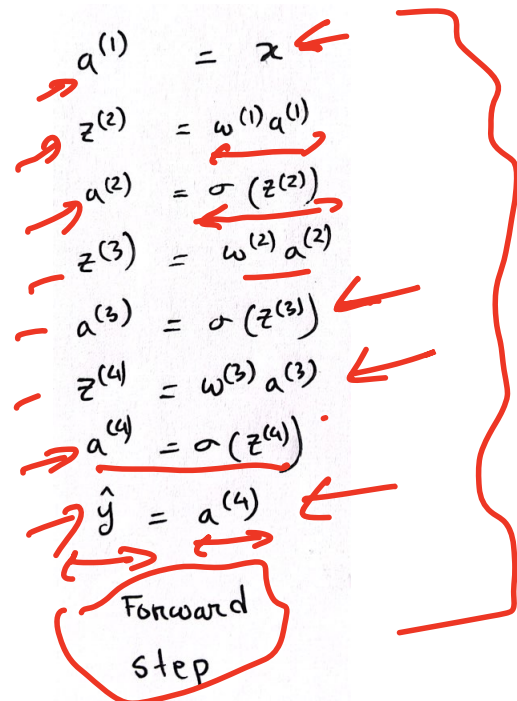 a⁽¹⁾ = x
z⁽²⁾ = w⁽¹⁾ a⁽¹⁾
a⁽²⁾ = σ (z⁽²⁾)
z⁽³⁾ = w⁽²⁾ a⁽²⁾
a⁽³⁾ = σ (z⁽³⁾)
z⁽⁴⁾ = w⁽³⁾ a⁽³⁾
a⁽⁴⁾ = σ (z⁽⁴⁾)
ŷ = a⁽⁴⁾
Forward
step